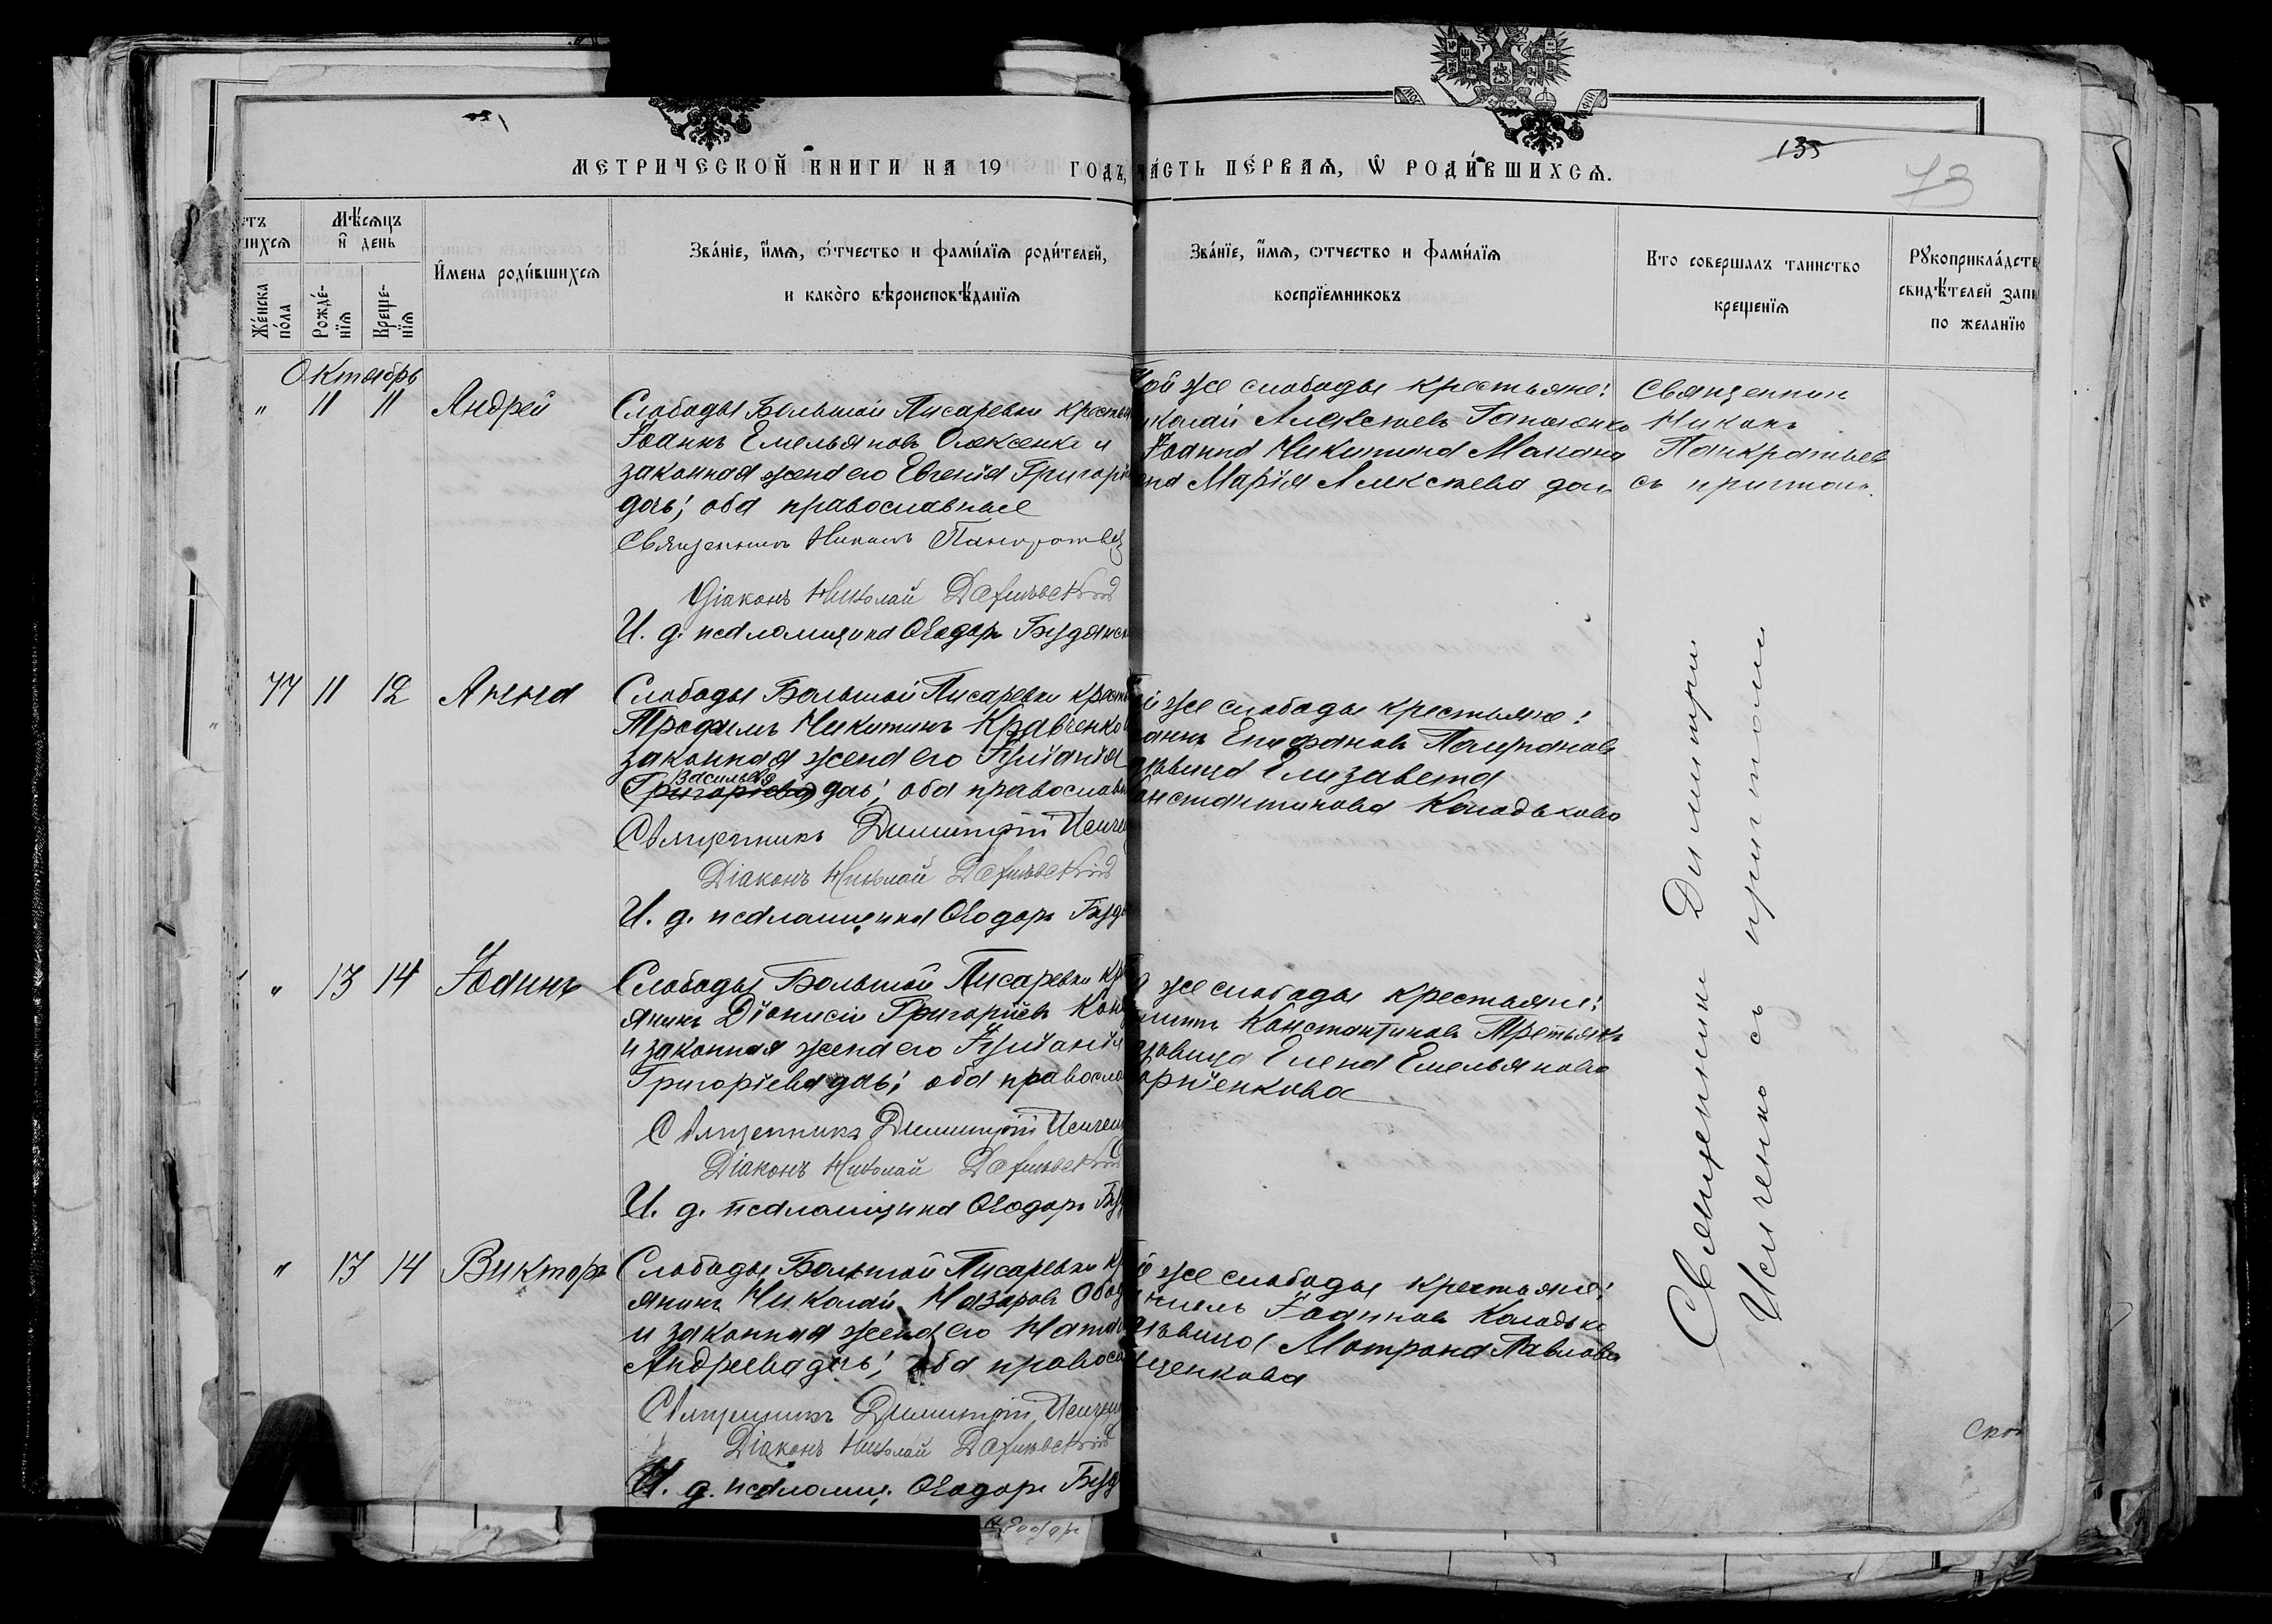 МЕТРИЧЕСКОЙ КНИГИ НА 19 ГОДЪ, ЧА́СТЬ ПЕ́РВАѦ, Ѿ РОДИ́ВШИХСѦ.
135
73
Мѣ́сѧцъ и҆ день
Же́нска по́ла
Рожде́-нїѧ
Креще-нїѧ
И҆мена роди́вшихсѧ
Зва́нїе, и҆́мѧ, ѻ҆́тчество и фами́лїѧ роди́телей,
и како́го вѣроисповѣ́данїѧ
Зва́нїе, и҆́мѧ, ѻтчество и фами́лїѧ
воспрїе́мниковъ
Кто совершалъ таинство
крещенїѧ
Рꙋкоприкла́дст
свидѣ́телей запи
по желанїю
Октябрь
" 11 11 Андрей
Слободы Большой Писаревки кресть
Іоаннъ Емельяновъ Олексенко и
законная жена его Евгенія Григорі
дочь; оба православные
Священникъ Никонъ Панкратьев
Діаконъ Николай
И. д. псаломщика Ѳеодоръ Будянск
той же слободы крестьяне:
Николай Алексѣевъ
Іоанна Никитина
жена Марія Алексѣева дочь
Священник
Никонъ
Панкратьев
съ причтом.
77 11 12 Анна
Слободы Большой Писаревки кресть
Трофимъ Никитинъ Кравченко
законная жена его Іуліанія
Васильева
Григоріева дочь; оба православн
Священникъ Димитрій Исиче
Діаконъ Николай
И. д. псаломщика Ѳеодоръ Буд
й же слободы крестьяне:
аннъ Епифановъ
дѣвица Елизавета
Константинова Колодькова
" 13 14 Іоаннъ
Слободы Большой Писаревки кр
янинъ Діонисій Григорьевъ Кон
и законная жена его Іуліанія
Григоріева дочь; оба правосла
Священникъ Димитрій Исичен
Діаконъ Николай
И. д. псаломщика Ѳеодоръ Бу
й же слободы крестьяне:
Константиновъ Третьякъ
дѣвица Елена Емельянова
орніенкова
" 13 14 Викторъ
Слободы Большой Писаревки кр
янинъ Николай Назаровъ
и законная жена его Ната
Андреева дочь; оба правосл
Священникъ Димитрій Исичен
Діаконъ Николай
И. д. псаломщ. Ѳеодоръ Буд
й же слободы крестьяне:
Іоанновъ Колодько
дѣвица Матрона Павлова
щенкова
Священники Димитрій
Исиченко съ причтомъ